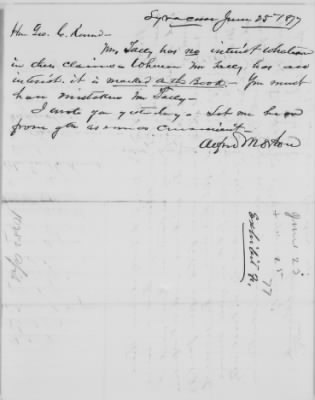 Syracuse June 25th 1877
Hon Geo. C. Round—
Mr. Tally has no interest whatever
in then claims – Whenever Mr Tally has an
interest it is marked on the Book – You must
have mistaken Mr Tally –
I wrote you yesterday – Let me hear
from you as soon as convenient –
Alfred Morton
June 25
June 25
77
Exhibit